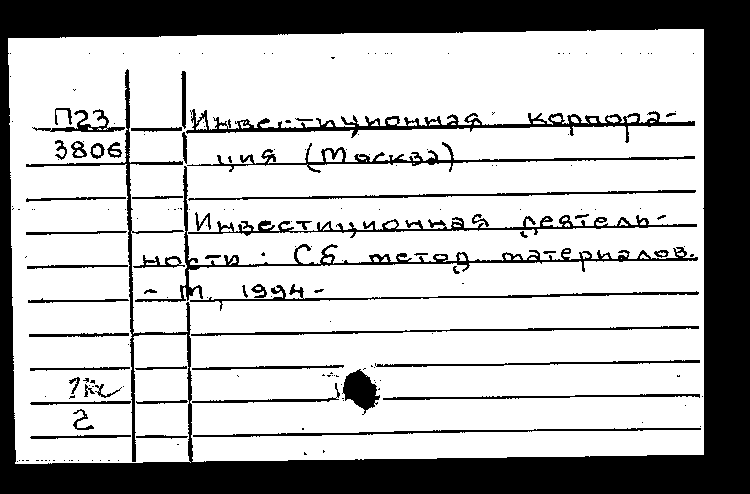 П23 Инвестиционная корпора-
3806 ция (Москва)
Инвестиционная деятель-
ности : Сб. метод. материалов.
- М., 1994 -
2